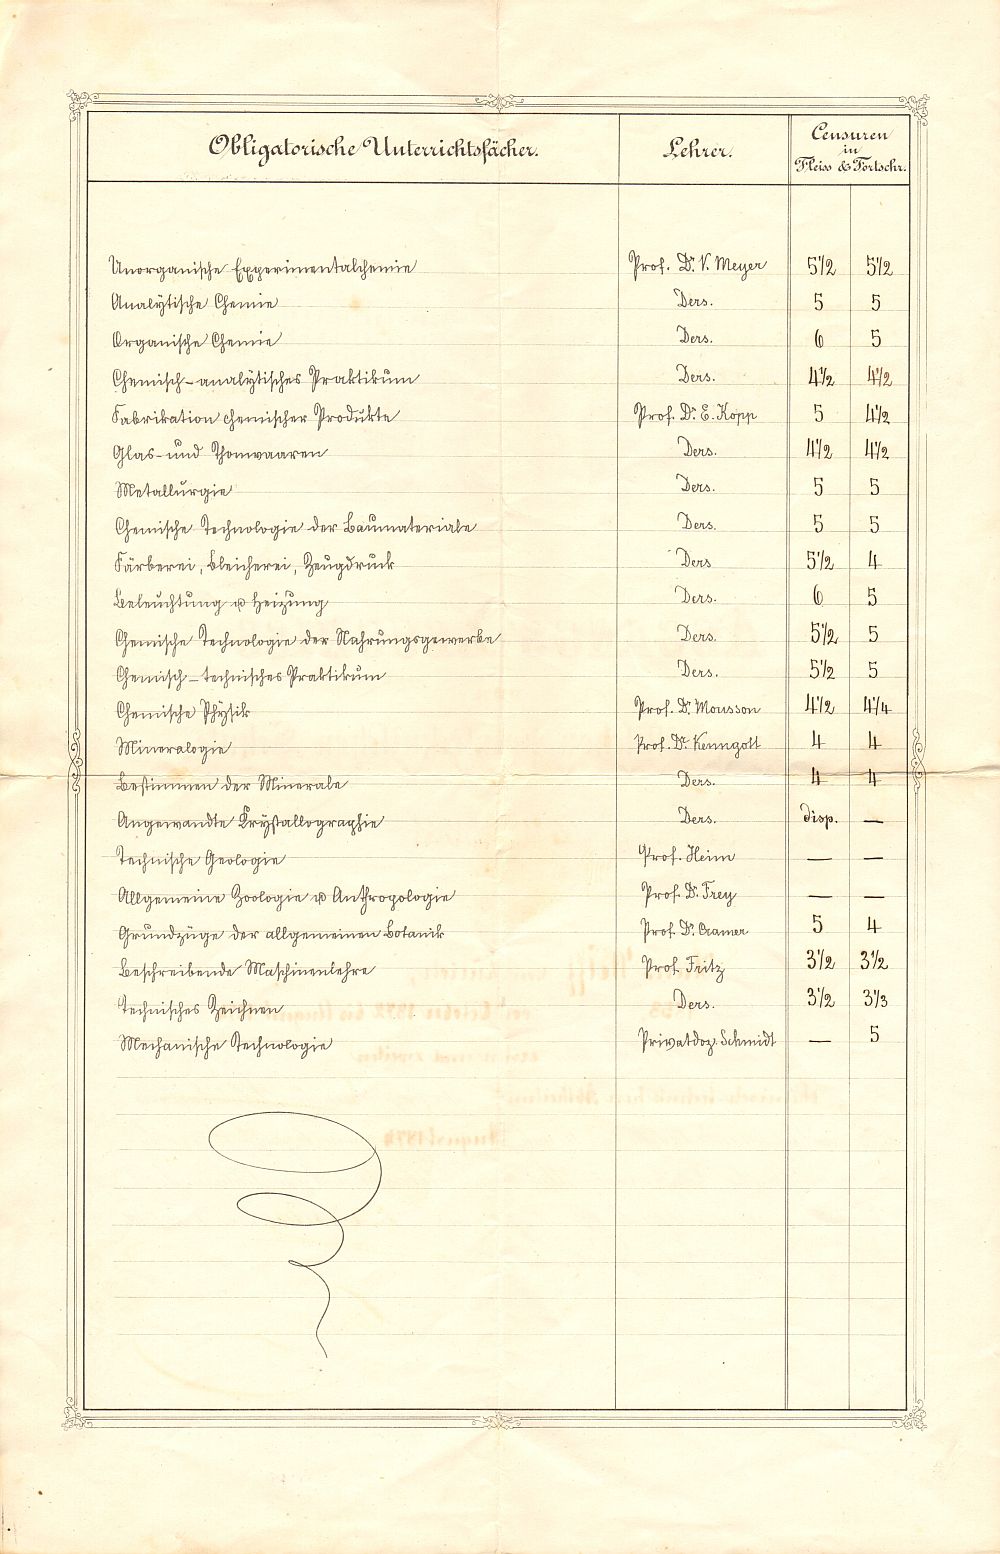 Obligatorische Unterrichtsfächer. Lehrer. Censuren
in
Fleiss & Fortschr.
Unorganische Experimentalchemie Prof. Dr. V. Meyer 5 1/2 5 1/2
Analytische Chemie Ders. 5 5
Organische Chemie Ders. 6 5
Chemisch-analytisches Praktikum Ders. 4 1/2 4 1/2
Fabrikation chemischer Produkte Prof. Dr. E. Kopp 5 4 1/2
Glas- und Thonwaaren Ders. 4 1/2 4 1/2
Metallurgie Ders. 5 5
Chemische Technologie der Baumateriale Ders. 5 5
Färberei, Bleicherei, Zeugdruck Ders 5 1/2 4
Beleuchtung u Heizung Ders. 6 5
Chemische Technologie der Nahrungsgewerbe Ders. 5 1/2 5
Chemisch-technisches Praktikum Ders. 5 1/2 5
Chemische Physik Prof. Dr. Mousson 4 1/2 4 1/4
Mineralogie Prof. Dr. Kenngott 4 4
Bestimmen der Minerale Ders. 4 4
Angewandte Krystallographie Ders. disp. —
Technische Geologie Prof. Heim — —
Allgemeine Zoologie u Anthropologie Prof. Dr. Frey — —
Grundzüge der allgemeinen Botanik Prof. Dr. Cramer 5 4
Beschreibende Maschinenlehre Prof. Fritz 3 1/2 3 1/2
Technisches Zeichnen Ders. 3 1/2 3 1/3
Mechanische Technologie Privatdoz. Schmidt — 5